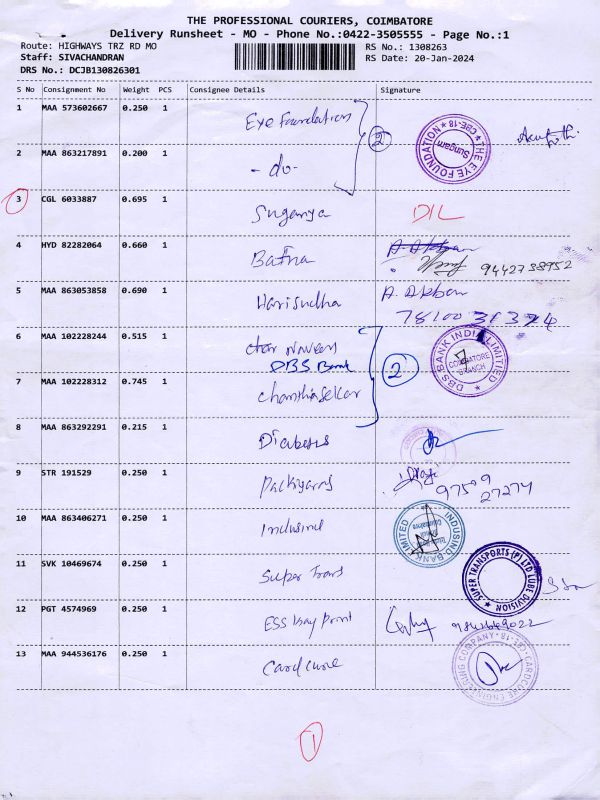 THE PROFESSIONAL COURIERS, COIMBATORE
Delivery Runsheet - MO - Phone No.:0422-3505555 - Page No.:1
Route: HIGHWAYS TRZ RD MO RS No.: 1308263
Staff: SIVACHANDRAN RS Date: 20-Jan-2024
DRS No.: DCJB130826301
S No Consignment No Weight PCS Consignee Details Signature
1 MAA 573602667 0.250 1 Eye Foundation 2 THE EYE FOUNDATION CBE-18 Sungam
2 MAA 863217891 0.200 1 -do-
3 CGL 6033887 0.695 1 Suganya DIL
4 HYD 82282064 0.660 1 Bafna A. Akban 9442738952
5 MAA 863053858 0.690 1 Harisudha A. Akban
7810031324
6 MAA 102228244 0.515 1 Naveen DBS BANK INDIA LIMITED COIMBATORE BRANCH
DBS Bank 2
7 MAA 102228312 0.745 1 Chandhiasekar
8 MAA 863292291 0.215 1 Diabetes
9 STR 191529 0.250 1 Packiyams 9750927274
10 MAA 863406271 0.250 1 Indusind INDUSIND BANK LIMITED
11 SVK 10469674 0.250 1 Super Trans SUPER TRANSPORTS (P) LTD LUBE DIVISION
12 PGT 4574969 0.250 1 ESS Kay Print 9841669022
13 MAA 944536176 0.250 1 Cardcure CARDCURE ENGINEERING COMPANY CBE-18
1